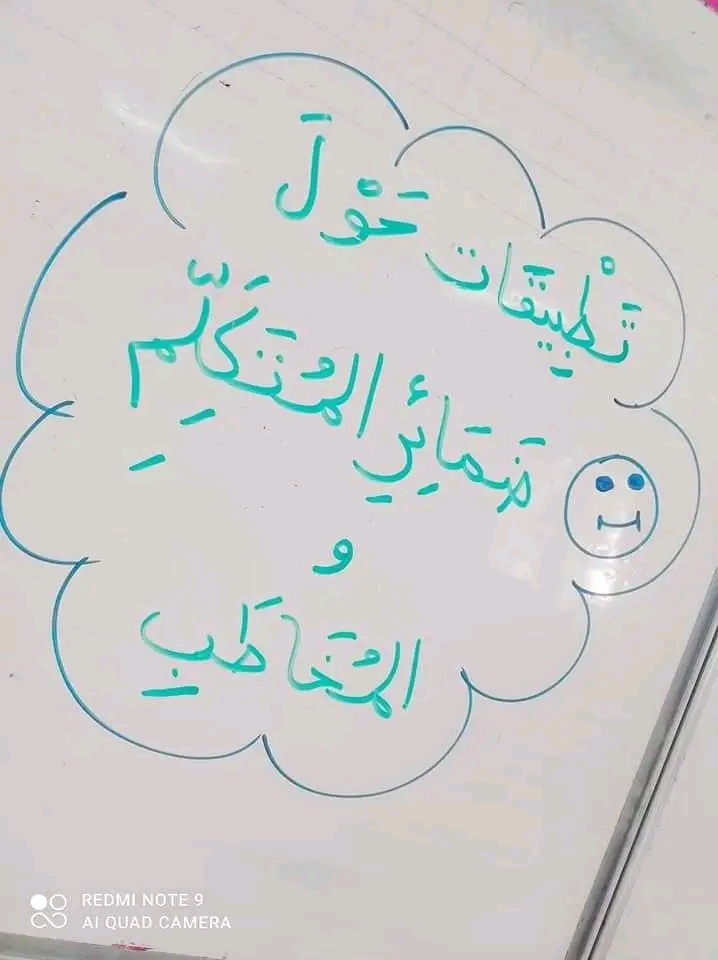 تَطْبِيقَات حَوْلَ
ضَمَائِرِ المُتَكَلِّمِ
و
المُخَاطَبِ
REDMI NOTE 9
AI QUAD CAMERA